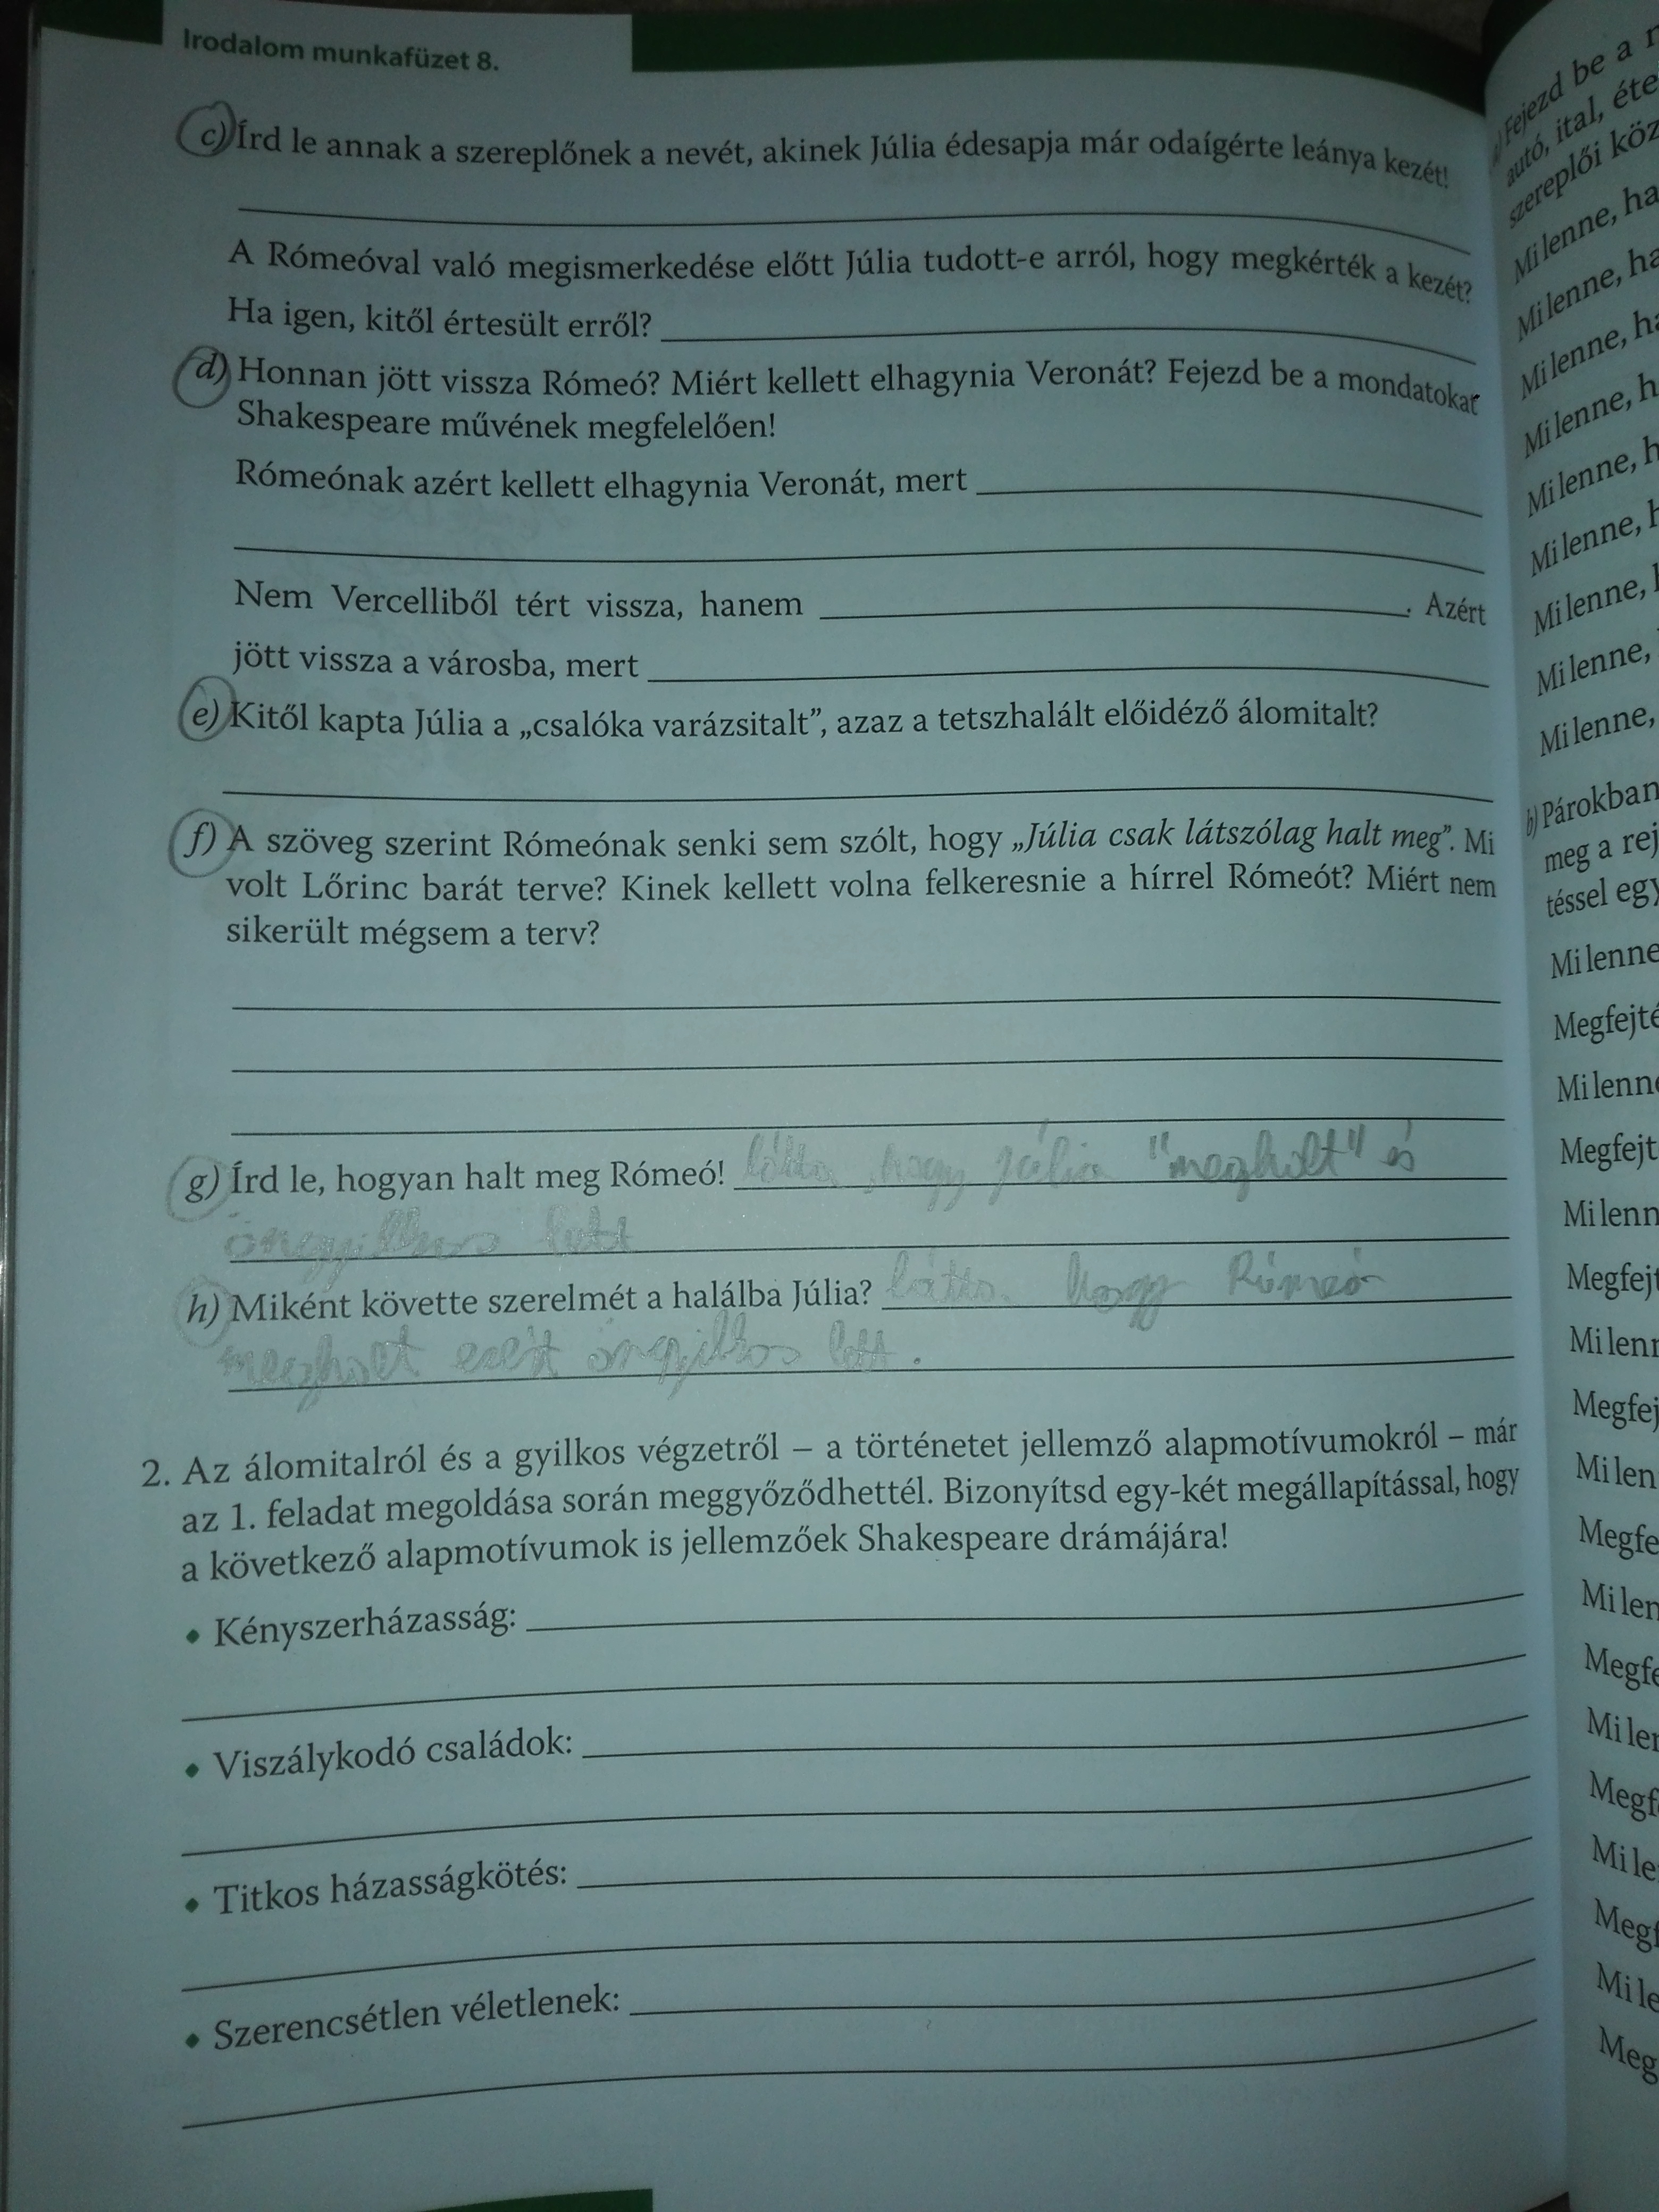 Irodalom munkafüzet 8.
c) Írd le annak a szereplőnek a nevét, akinek Júlia édesapja már odaígérte leánya kezét!
A Rómeóval való megismerkedése előtt Júlia tudott-e arról, hogy megkérték a kezét?
Ha igen, kitől értesült erről?
d) Honnan jött vissza Rómeó? Miért kellett elhagynia Veronát? Fejezd be a mondatokat
Shakespeare művének megfelelően!
Rómeónak azért kellett elhagynia Veronát, mert
Nem Vercelliből tért vissza, hanem . Azért
jött vissza a városba, mert
e) Kitől kapta Júlia a „csalóka varázsitalt”, azaz a tetszhalált előidéző álomitalt?
f) A szöveg szerint Rómeónak senki sem szólt, hogy „Júlia csak látszólag halt meg”. Mi
volt Lőrinc barát terve? Kinek kellett volna felkeresnie a hírrel Rómeót? Miért nem
sikerült mégsem a terv?
g) Írd le, hogyan halt meg Rómeó! látta, hogy Júlia "megholt" és
öngyilkos lett
h) Miként követte szerelmét a halálba Júlia? látta hogy Rómeó
megholt ezért öngyilkos lett.
2. Az álomitalról és a gyilkos végzetről – a történetet jellemző alapmotívumokról – már
az 1. feladat megoldása során meggyőződhettél. Bizonyítsd egy-két megállapítással, hogy
a következő alapmotívumok is jellemzőek Shakespeare drámájára!
• Kényszerházasság:
• Viszálykodó családok:
• Titkos házasságkötés:
• Szerencsétlen véletlenek:
Fejezd be a
autó, ital,
szereplői
Mi lenne,
Mi lenne,
Mi lenne,
Mi lenne,
Mi lenne,
Mi lenne,
Mi lenne,
Mi lenne,
Mi lenne,
b) Párokban
meg a
téssel
Mi lenne
Mi
Mi
Mi
Mi
Mi
Mi
Mi
Mi